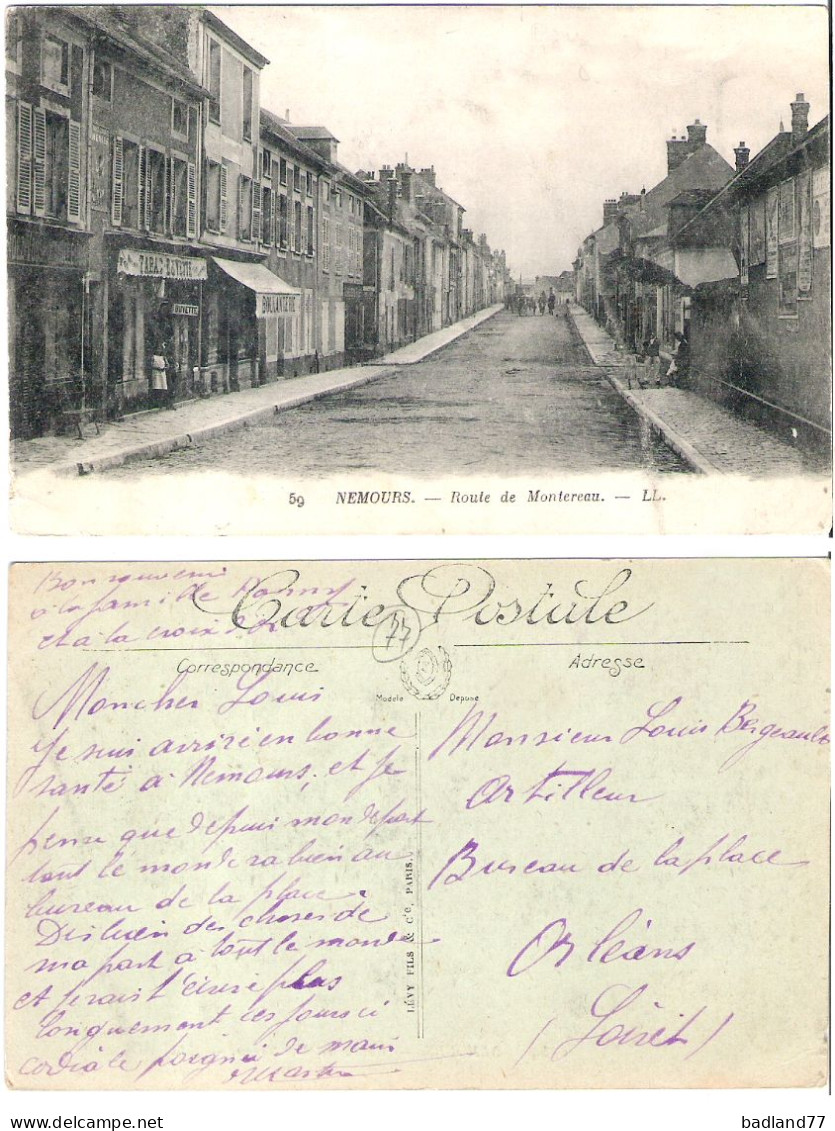 TABAC BUVETTE
BUVETTE
BOULANGERIE
59 NEMOURS. — Route de Montereau. — LL.
Bon souvenir
à la famille
et à la croix
Carte Postale
77
Correspondance
Adresse
Modèle Déposé
Mon cher Louis
Je suis arrivé en bonne
santé à Nemours, et je
pense que depuis mon départ
tout le monde va bien au
bureau de la place.
Dis bien des choses de
ma part à tout le monde
et je vais t'écrire plus
longuement ces jours ci
cordiale poignée de main
LÉVY FILS & Cie, PARIS.
Monsieur Louis Bergeault
Artilleur
Bureau de la place
Orléans
(Loiret)
badland77